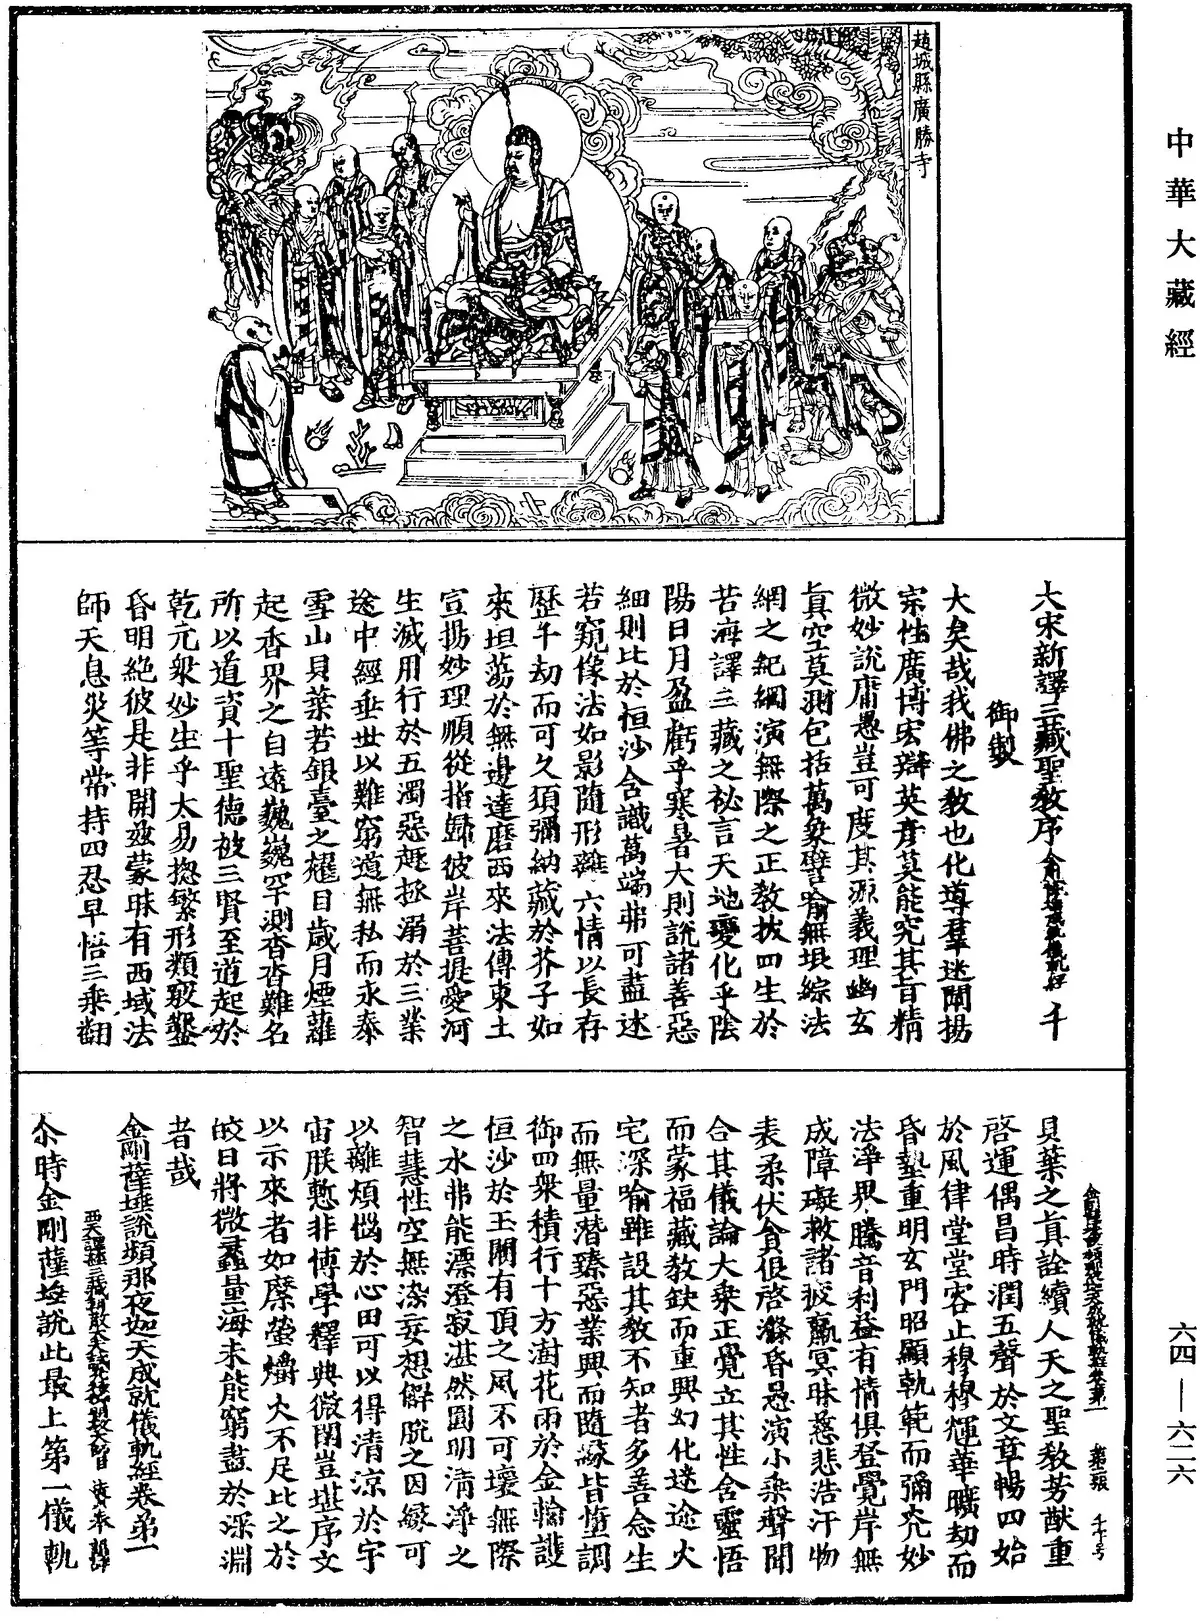 中華大藏經
趙城縣廣勝寺
大宋新譯三藏聖教序 千
御製
大矣哉我佛之教也化導羣迷闡揚
宗性廣博宏辯英彥莫能究其旨精
微妙說庸愚豈可度其源義理幽玄
真空莫測包括萬象譬喻無垠綜法
網之紀綱演無際之正教拔四生於
苦海譯三藏之祕言天地變化乎陰
陽日月盈虧乎寒暑大則說諸善惡
細則比於恒沙含識萬端弗可盡述
若窺像法如影隨形離六情以長存
歷千劫而可久須彌納藏於芥子如
來坦蕩於無邊達磨西來法傳東土
宣揚妙理順從指歸彼岸菩提愛河
生滅用行於五濁惡趣拯溺於三業
途中經垂世以難窮道無私而永泰
雪山貝葉若銀臺之耀目歲月煙蘿
起香界之自遠巍巍罕測杳杳難名
所以道資十聖德被三賢至道起於
乾元衆妙生乎太易揔繁形類竅鑿
昏明絕彼是非開茲蒙昧有西域法
師天息災等常持四忍早悟三乘翻
貝葉之真詮續人天之聖教芳猷重
啓運偶昌時潤五聲於文章暢四始
於風律堂堂容止穆穆輝華曠劫而
昏蟄重明玄門昭顯軌範而彌光妙
法淨界騰音利益有情俱登覺岸無
成障礙救諸疲羸冥昧慈悲浩汗物
表柔伏貪佷啓滌昏愚演小乘聲聞
合其儀論大乘正覺立其性含靈悟
而蒙福藏教缺而重興幻化迷途火
宅深喻雖設其教不知者多善念生
而無量潛臻惡業興而隨緣皆墮調
御四衆積行十方澍花雨於金輪護
恒沙於玉關有頂之風不可壞無際
之水弗能漂澄寂湛然圓明清淨之
智慧性空無染妄想解脫之因緣可
以離煩惱於心田可以得清涼於宇
宙朕慙非博學釋典微閑豈堪序文
以示來者如縻螢爝火不足比之於
皎日將微蠡量海未能窮盡於深淵
者哉
金剛薩埵說頻那夜迦天成就儀軌經卷第一
尒時金剛薩埵說此最上第一儀軌
六四—六二六